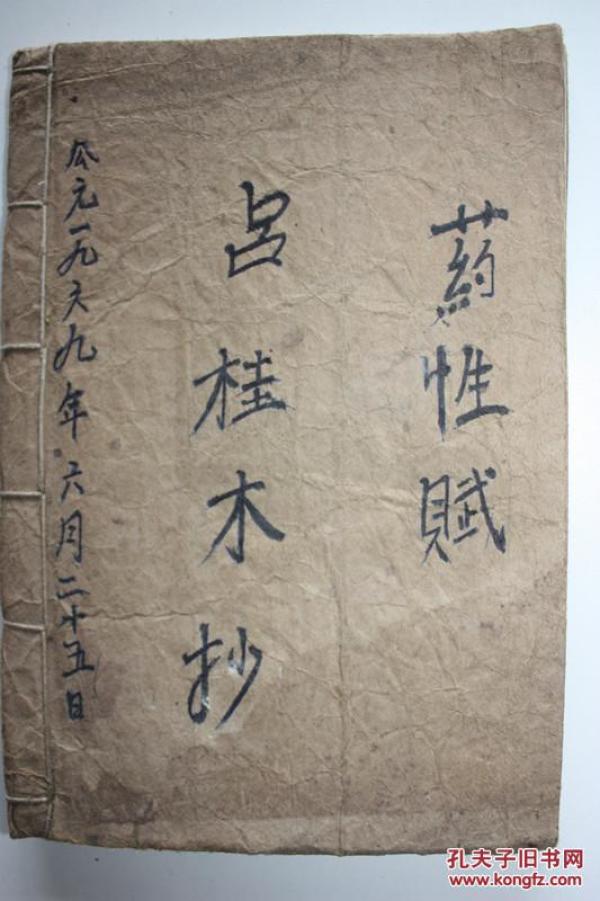 药性賦
吕桂木抄
公元一九六九年六月二十五日
孔夫子旧书网
www.kongfz.com